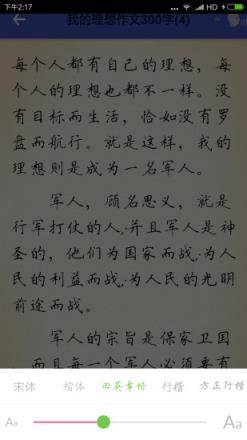 下午2:17
我的理想作文300字(4)
每个人都有自己的理想，每
个人的理想也都不一样。没
有目标而生活，恰如没有罗
盘而航行。就是这样，我的
理想则是成为一名军人。
军人，顾名思义，就是
行军打仗的人，并且军人是神
圣的，他们为国家而战，为人
民的利益而战，为人民的光明
前途而战。
军人的宗旨是保家卫国
，而且每一个军人必须要有
宋体 楷体 田英章楷 行楷 方正行楷
Aa Aa